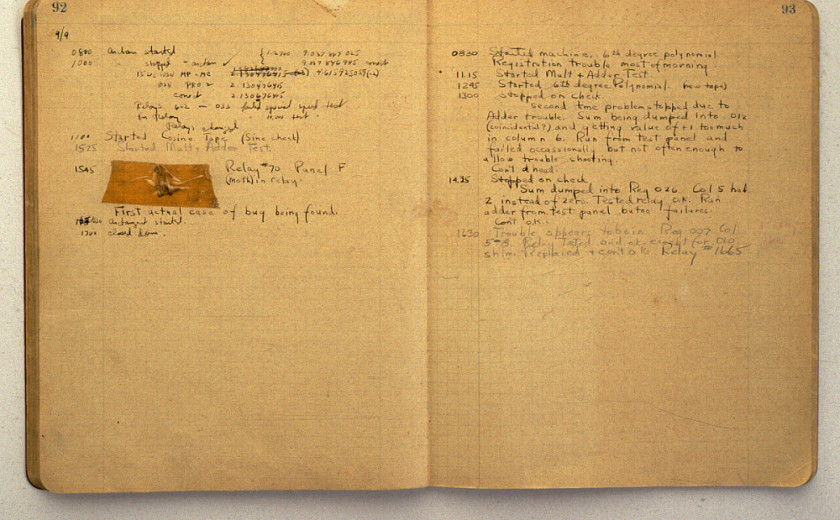 92
9/9
0800 Antan started
1000 stopped - antan ✓
13" uc (032) MP - MC
033 PRO 2 2.130476415
conck 2.130676415
Relays 6-2 in 033 failed special speed test
in relay " test.
Relays changed
1100 Started Cosine Tape (Sine check)
1525 Started Mult + Adder Test.
1545 Relay #70 Panel F
(moth) in relay.
First actual case of bug being found.
antangent started.
1700 closed down.
93
0830 Started machine. 6th degree polynomial.
Registration trouble most of morning.
1115 Started Mult + Adder Test.
1245 Started 6th degree Polynomial. (new tape)
1300 Stopped on check
second time problem stopped due to
Adder trouble. Sum being dumped into
(coincidental?) and getting value of +1 too much
in column 6. Run from test panel and
failed occasionally but not often enough to
allow trouble shooting.
Con't d
1435 Stopped on check
Sum dumped into Reg 026. Col 5 had
2 instead of zero. Tested relay o.k. Ran
adder from test panel but no failures.
Con't o.k.
1630 Trouble appears to be in Reg Col
5 Relay tested and o.k. except for
shim. Replaced + cont o.k. Relay #1665